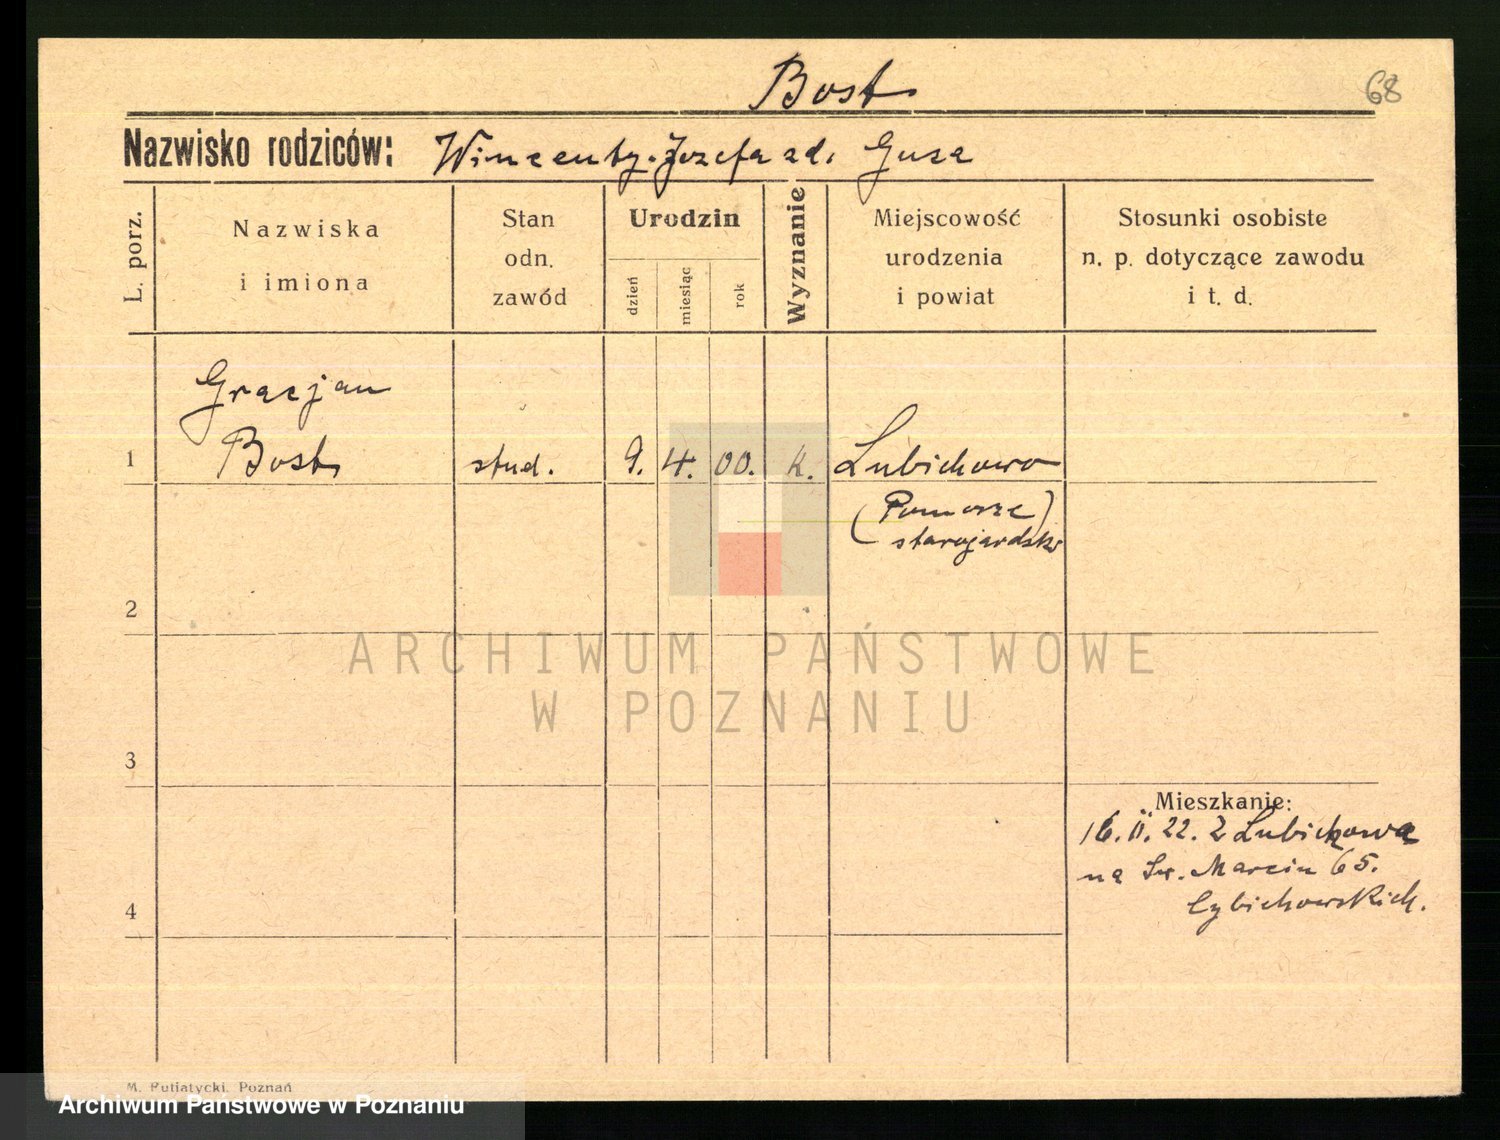 Bost
68
Nazwisko rodziców: Wincenty. Józefa zd. Guza
L. porz.
Nazwiska
i imiona
Stan
odn.
zawód
Urodzin
dzień
miesiąc
rok
Wyznanie
Miejscowość
urodzenia
i powiat
Stosunki osobiste
n. p. dotyczące zawodu
i t. d.
Gracjan
1 Bost stud. 9. 4. 00. k. Lubichowo
(Pomorze)
starogardski
2
ARCHIWUM PAŃSTWOWE
W POZNANIU
3
Mieszkanie:
16.II.22. z Lubichowa
na Św. Marcin 65.
4
Cybichowskich.
M. Putiatycki, Poznań
Archiwum Państwowe w Poznaniu